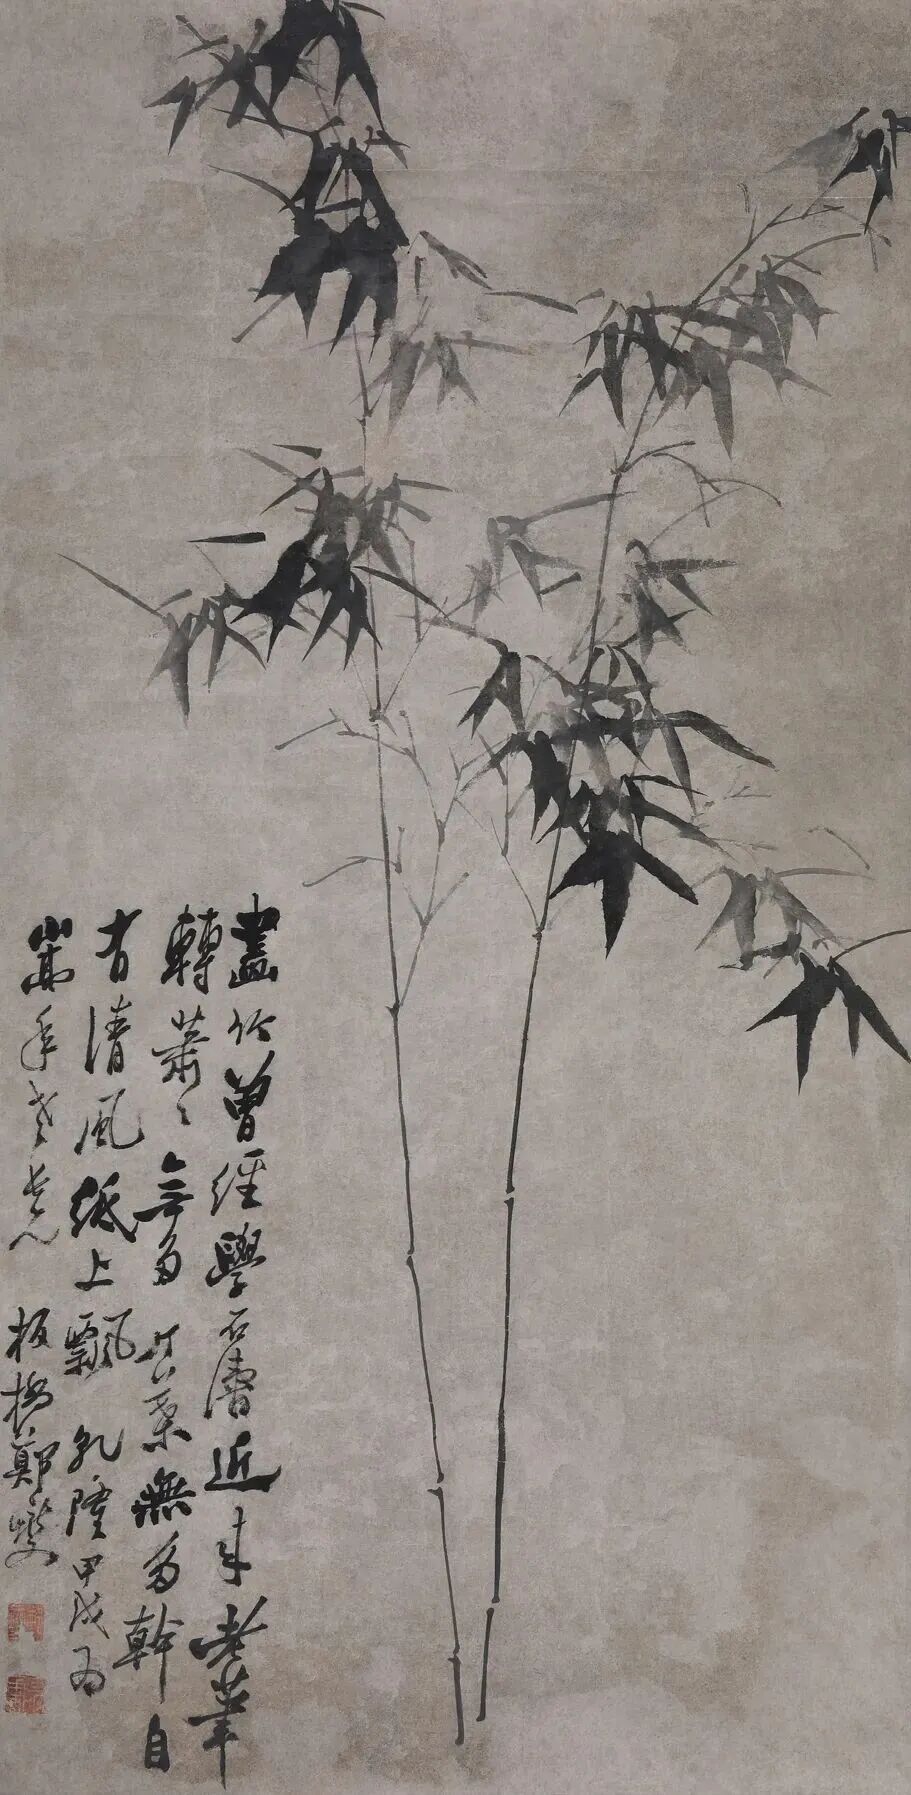 畫竹曾經學石濤近來老筆
轉蕭〻無多竹葉無多幹自
有清風紙上飄 乾隆甲戌為
嵩年老長兄 板橋鄭燮